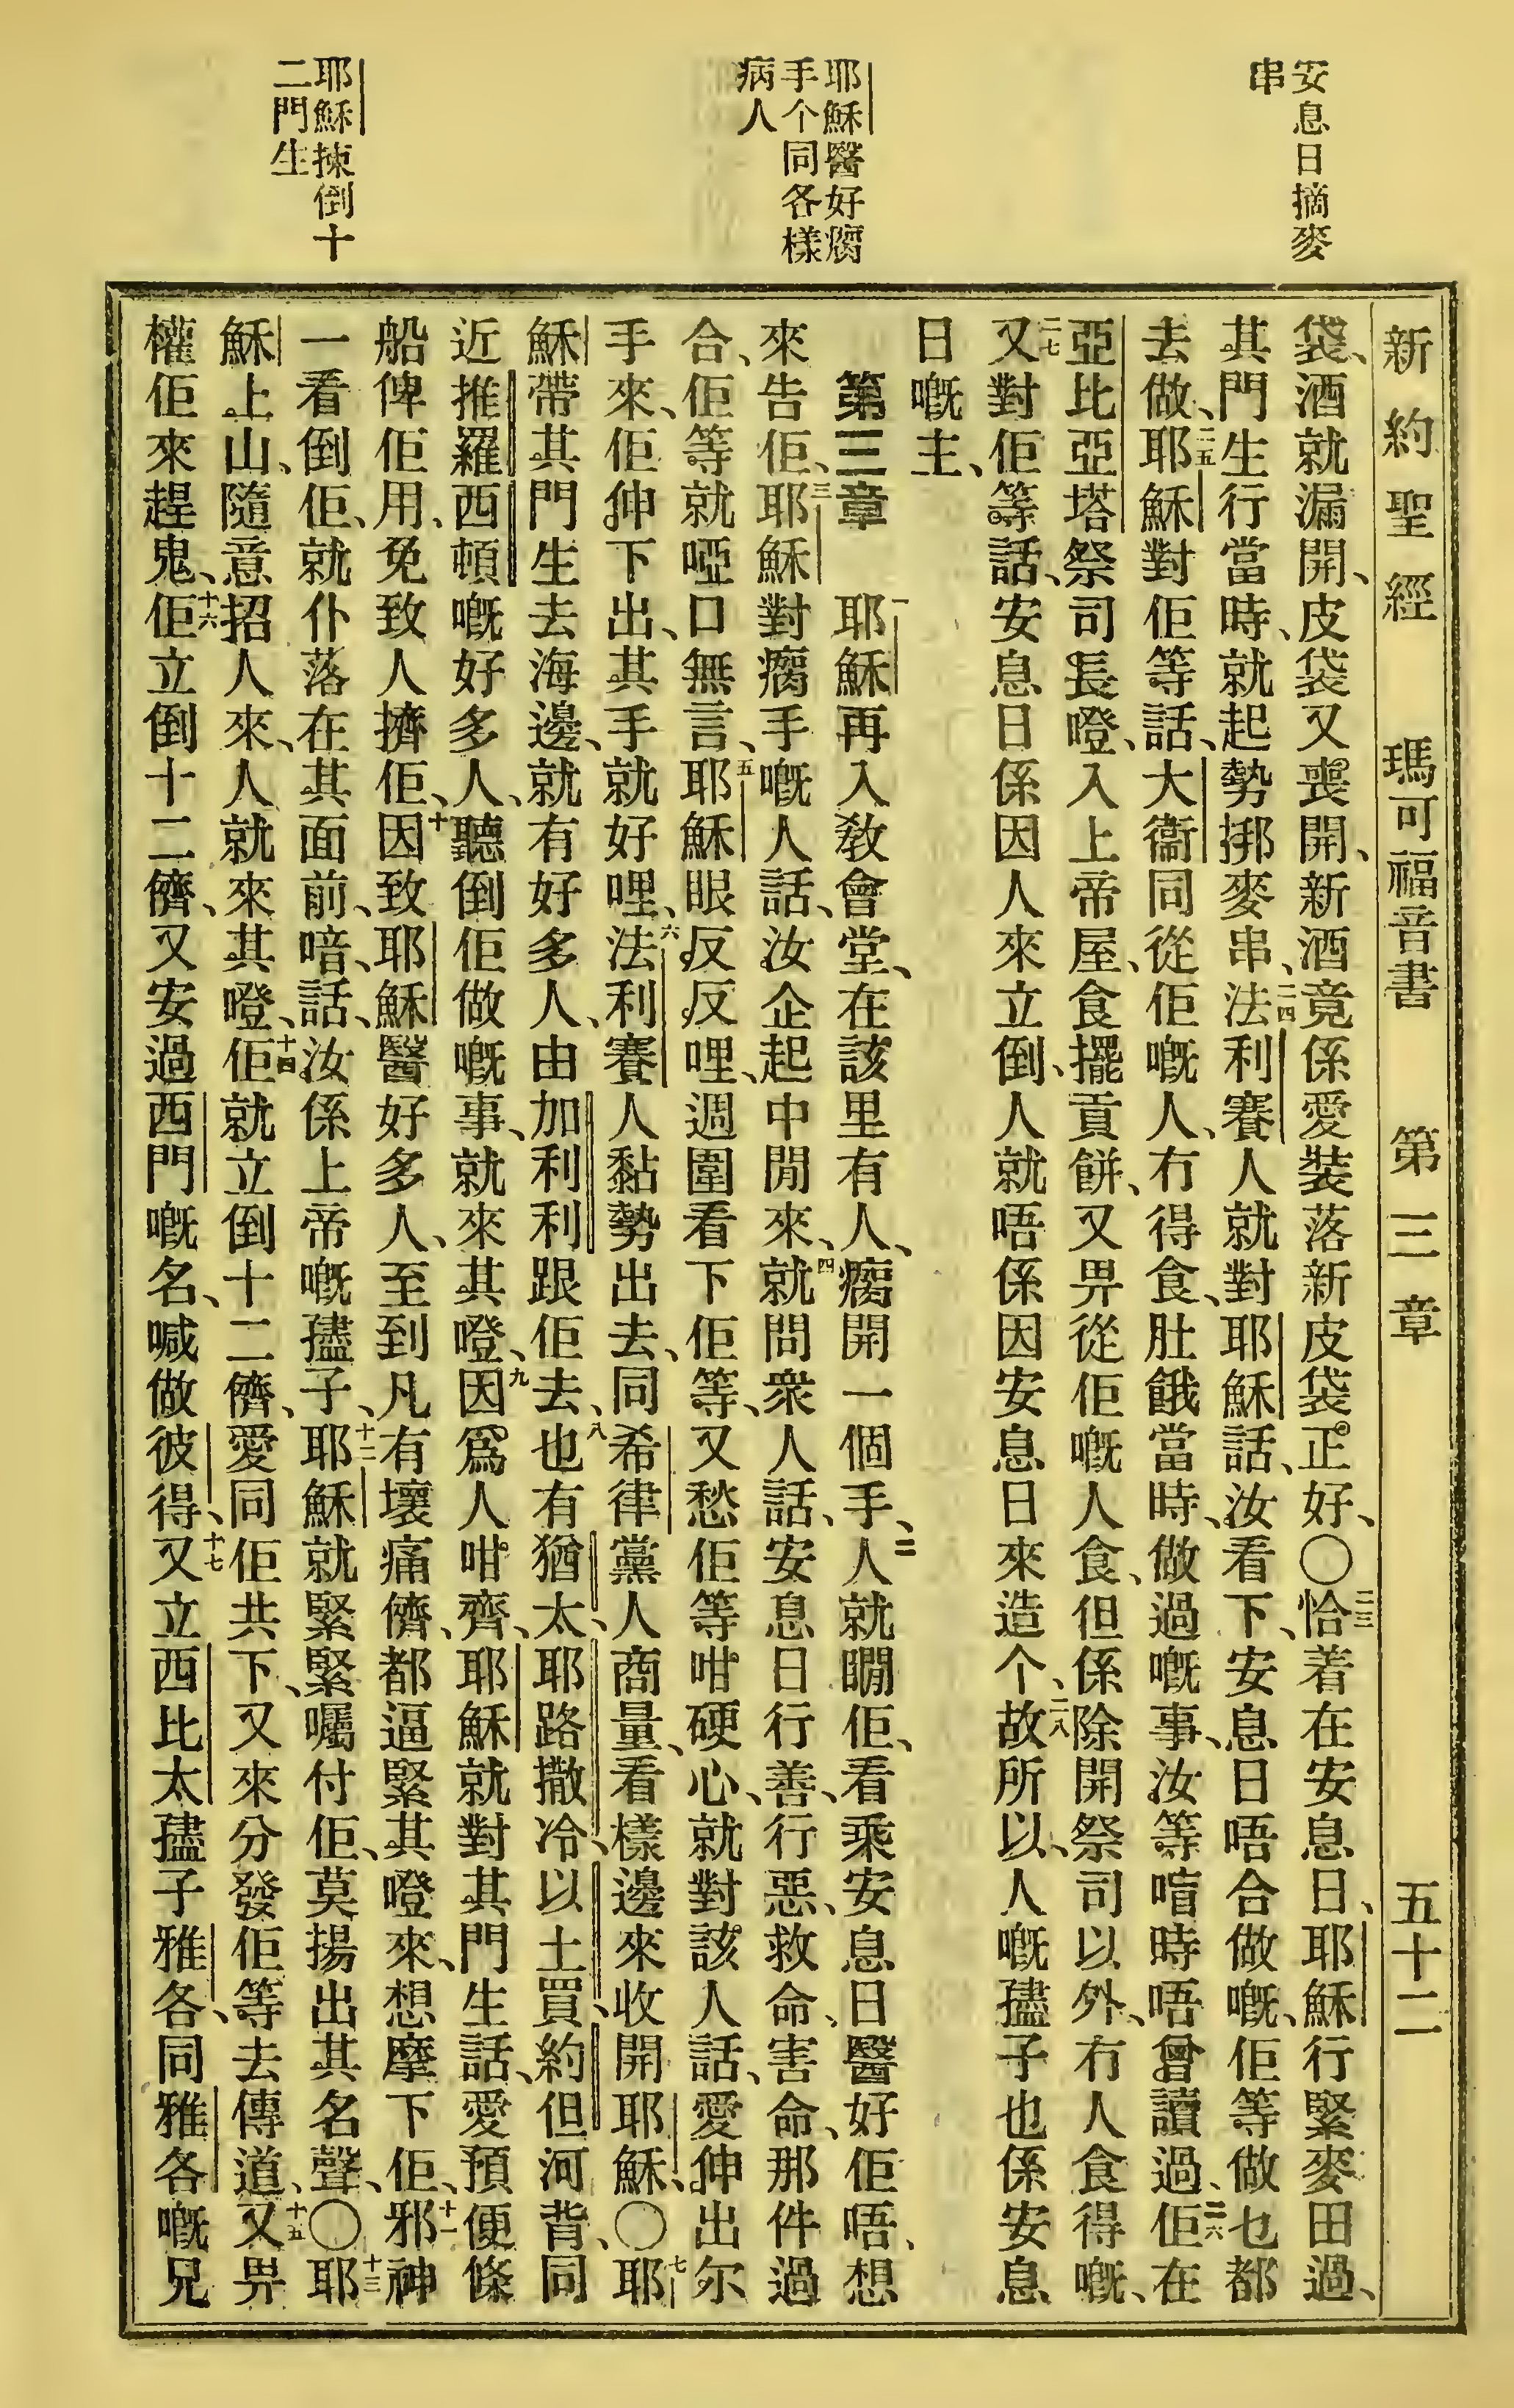 安息日摘麥
串
耶穌醫好瘸
手个同各樣
病人
耶穌揀倒十
二門生
新約聖經 瑪可福音書 第三章 五十二
袋、酒就漏開、皮袋又喪開、新酒竟係愛裝落新皮袋正好、〇二三恰着在安息日、耶穌行緊麥田過、
其門生行當時、就起勢挷麥串、二四法利賽人就對耶穌話、汝看下、安息日唔合做嘅、佢等做乜都
去做、二五耶穌對佢等話、大衞同從佢嘅人、冇得食、肚餓當時、做過嘅事、汝等喑時唔曾讀過、二六佢在
亞比亞塔祭司長嶝、入上帝屋、食擺貢餅、又畀從佢嘅人食、但係除開祭司以外、冇人食得嘅、
二七又對佢等話、安息日係因人來立倒、人就唔係因安息日來造个、二八故所以、人嘅孻子也係安息
日嘅主、
第三章 一耶穌再入敎會堂、在該里有人、瘸開一個手、二人就瞯佢、看乘安息日醫好佢唔、想
來告佢、三耶穌對瘸手嘅人話、汝企起中閒來、四就問衆人話、安息日行善、行惡、救命、害命、那件過
合、佢等就啞口無言、五耶穌眼反反哩、週圍看下佢等、又愁佢等咁硬心、就對該人話、愛伸出尔
手來、佢伸下出、其手就好哩、六法利賽人黏勢出去、同希律黨人商量、看樣邊來收開耶穌、〇七耶
穌帶其門生去海邊、就有好多人、由加利利跟佢去、八也有猶太、耶路撒冷、以土買、約但河背、同
近推羅西頓嘅好多人、聽倒佢做嘅事、就來其嶝、九因爲人咁齊、耶穌就對其門生話、愛預便條
船俾佢用、免致人擠佢、十因致耶穌醫好多人、至到凡有壞痛儕、都逼緊其嶝來、想摩下佢、十一邪神
一看倒佢、就仆落在其面前、喑、話、汝係上帝嘅孻子、十二耶穌就緊緊囑付佢、莫揚出其名聲、〇十三耶
穌上山、隨意招人來、人就來其嶝、十四佢就立倒十二儕、愛同佢共下、又來分發佢等去傳道、十五又畀
權佢來趕鬼、十六佢立倒十二儕、又安過西門嘅名、喊做彼得、十七又立西比太孻子雅各、同雅各嘅兄